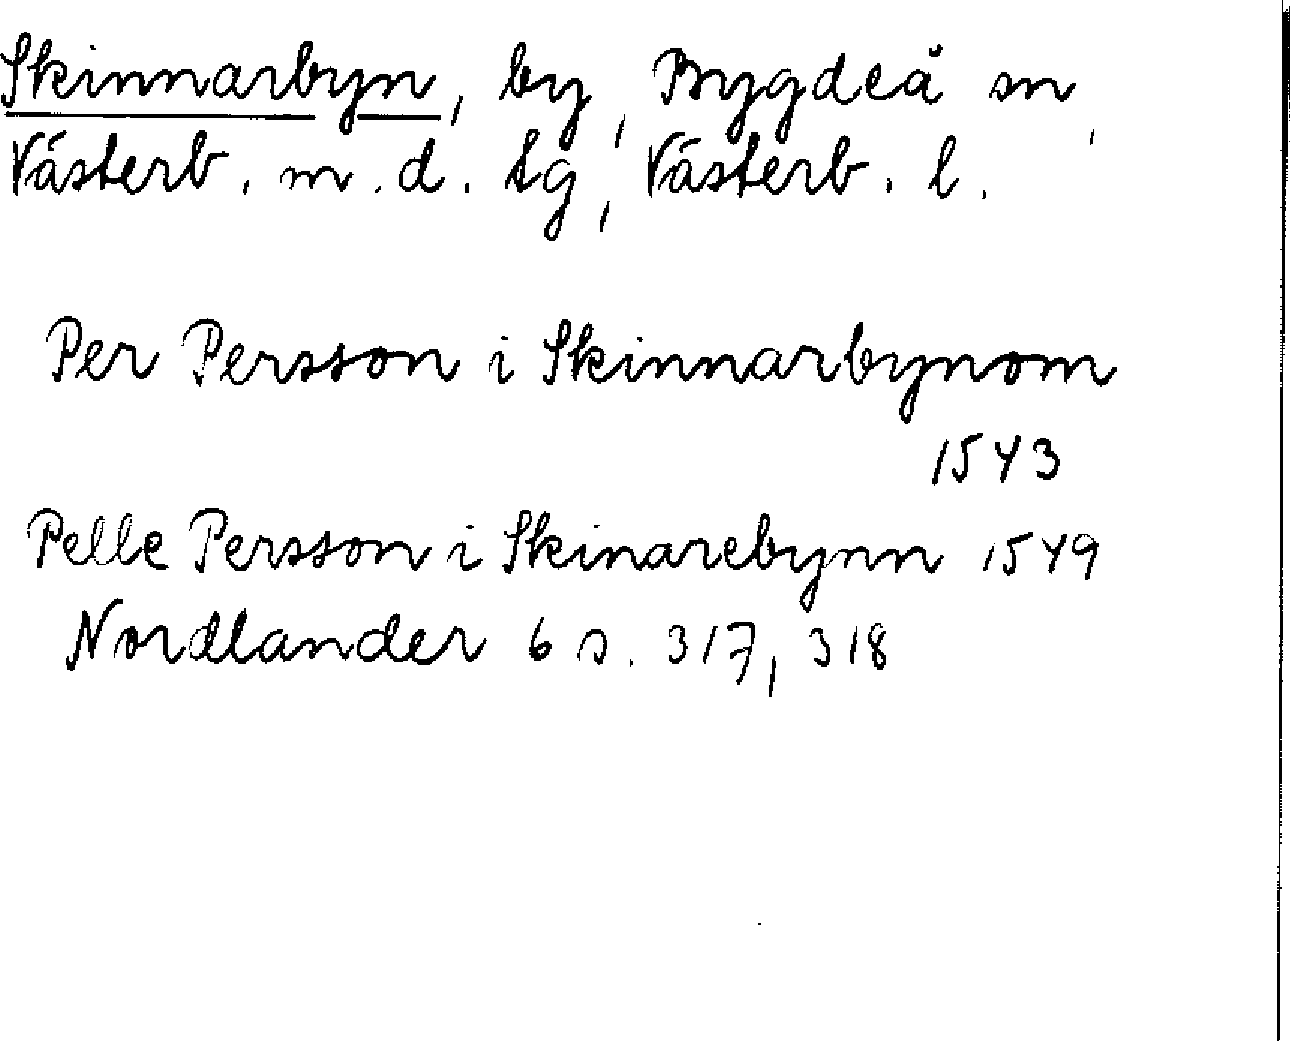 Skinnarbyn, by, Bygdeå sn,
Västerb. m. d. tg, Västerb. l.
Per Persson i Skinnarbynom
1543
Pelle Persson i Skinarebynn 1549
Nordlander 6 s. 317, 318